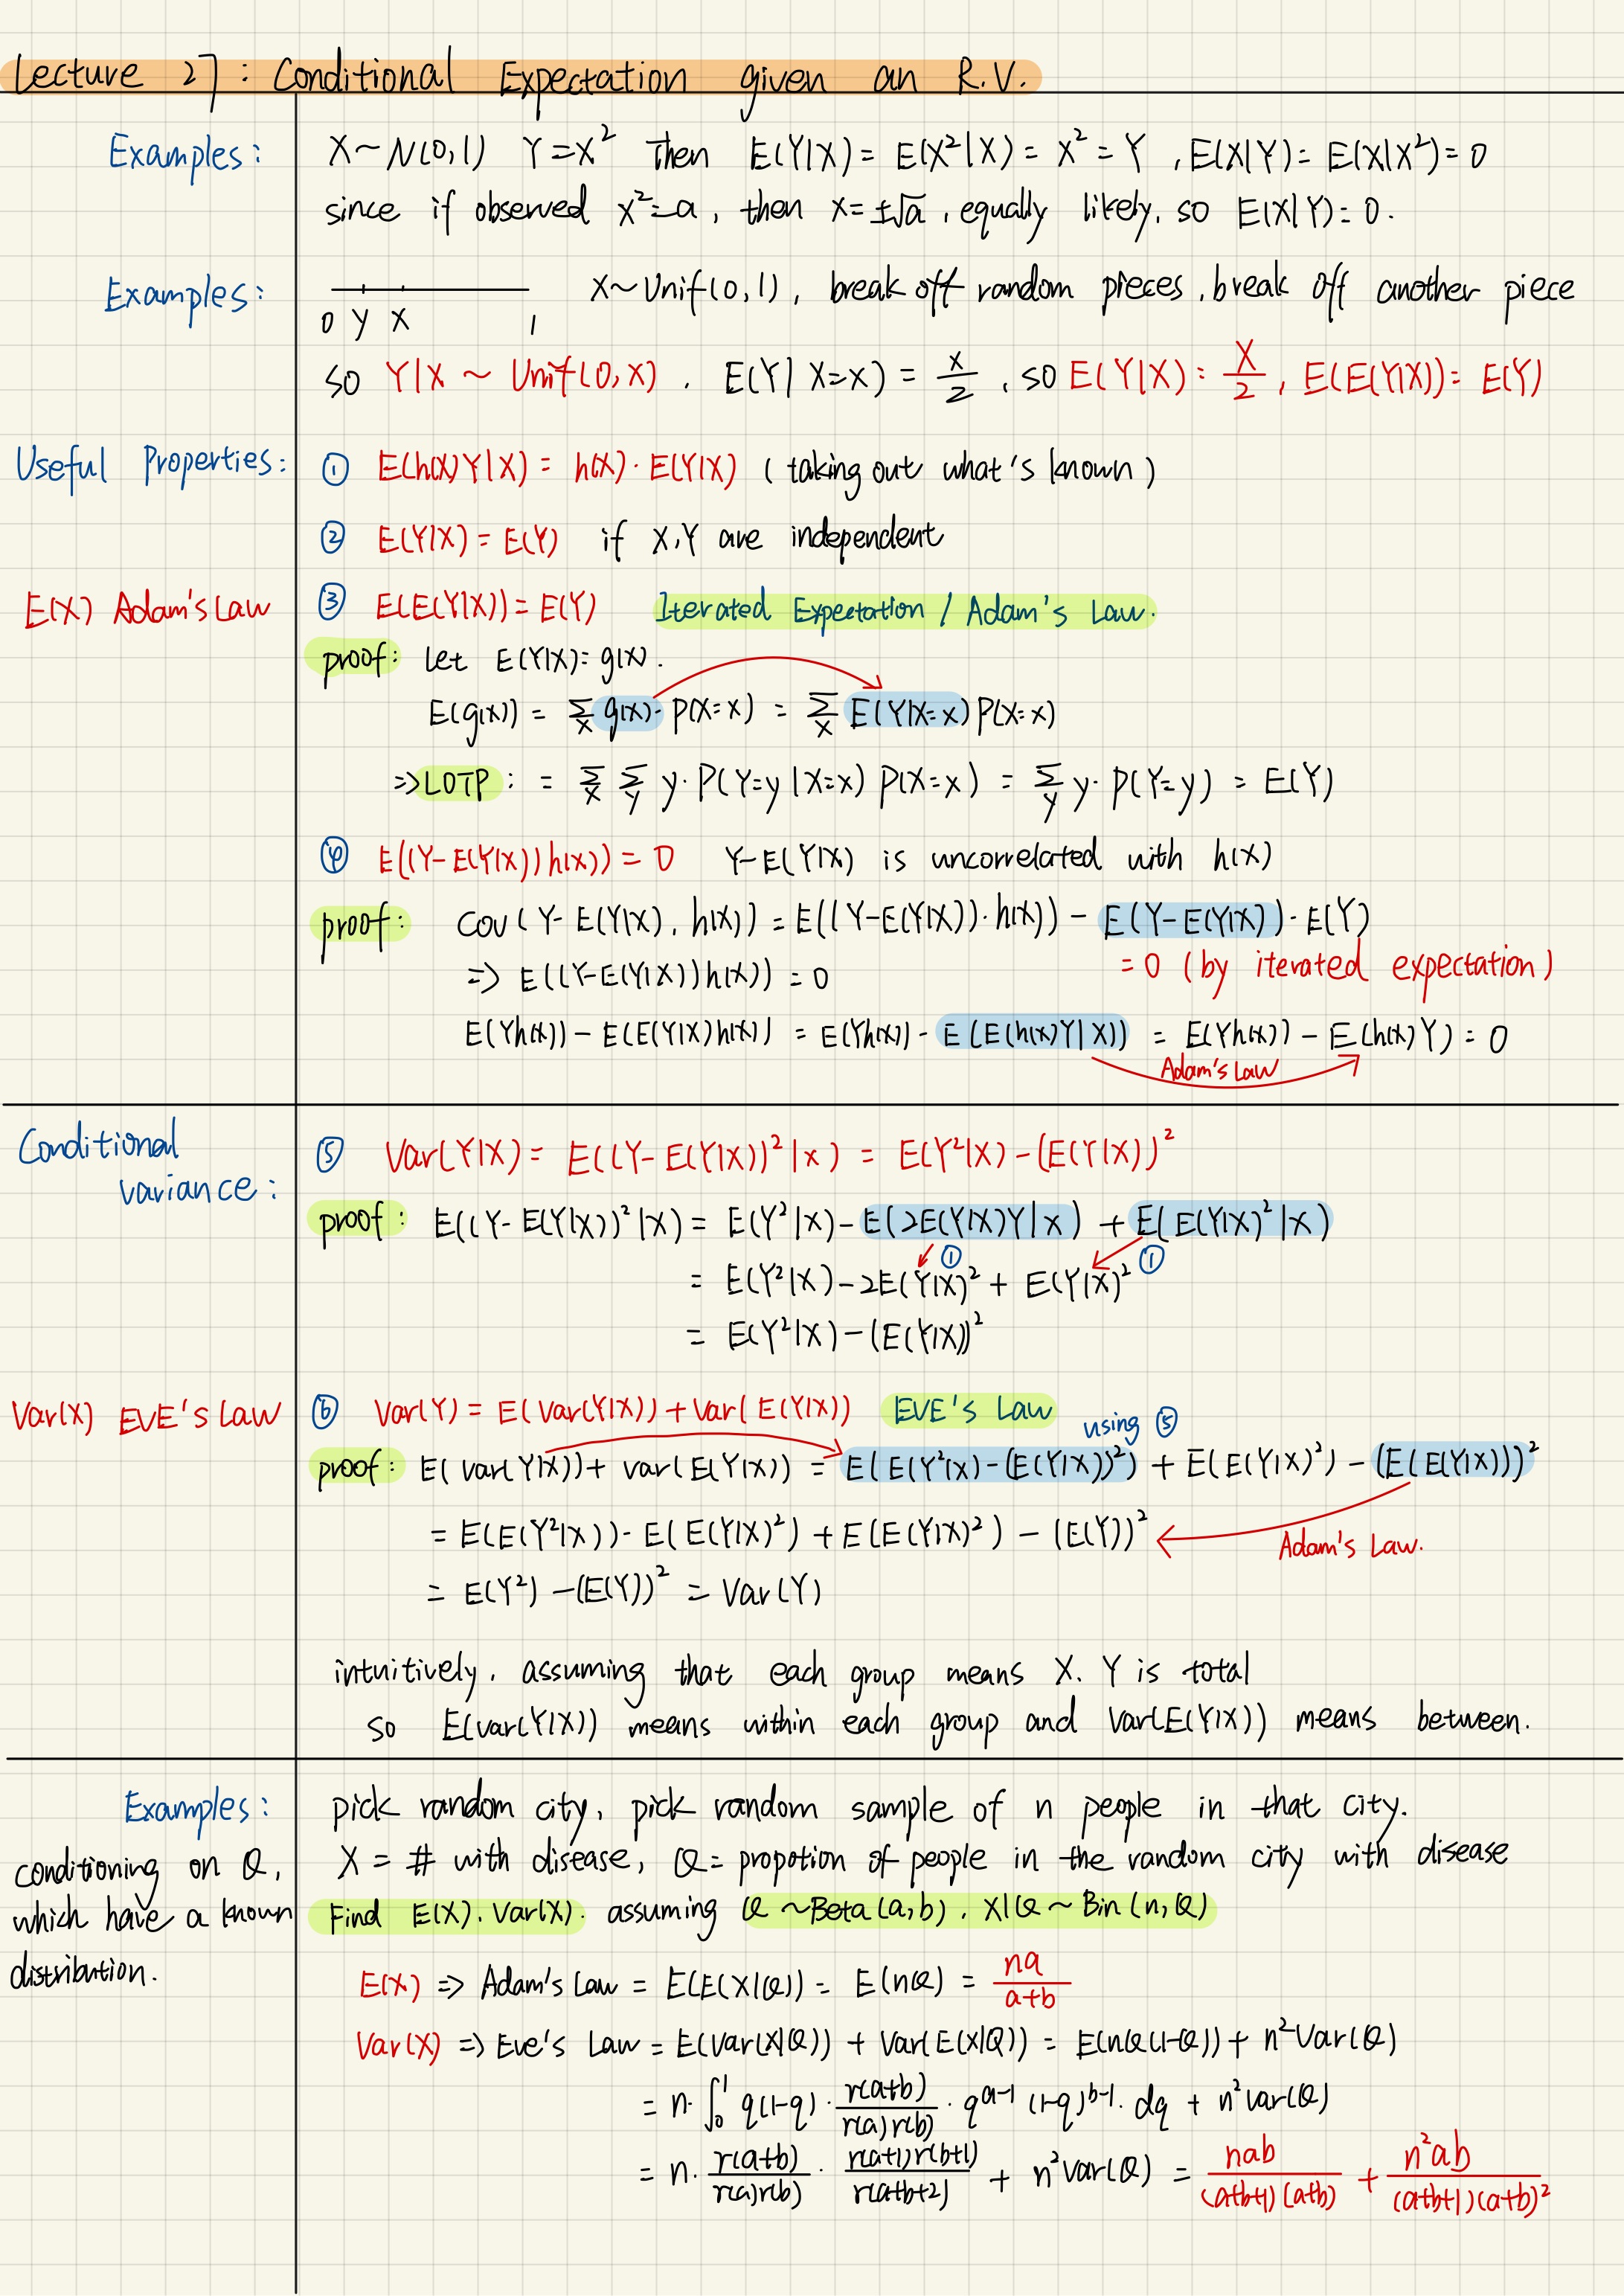 Lecture 27 : Conditional Expectation given an R.V.
Examples :
X ~ N(0,1) Y = X² Then E(Y|X) = E(X²|X) = X² = Y , E(X|Y) = E(X|X²) = 0
since if observed x² = a , then x = ±√a , equally likely, so E(X|Y) = 0 .
Examples :
0 Y X 1
X ~ Unif(0,1) , break off random pieces , break off another piece
so Y|X ~ Unif(0,X) . E(Y|X=x) = x/2 , so E(Y|X) = X/2 , E(E(Y|X)) = E(Y)
Useful Properties :
① E(h(X)Y|X) = h(X) · E(Y|X) ( taking out what's known )
② E(Y|X) = E(Y) if X,Y are independent
E(X) Adam's Law
③ E(E(Y|X)) = E(Y) Iterated Expectation / Adam's Law .
proof : let E(Y|X) = g(X) .
E(g(X)) = Σx g(x) · P(X=x) = Σx E(Y|X=x) P(X=x)
=> LOTP : = Σx Σy y · P(Y=y|X=x) P(X=x) = Σy y · P(Y=y) = E(Y)
④ E((Y-E(Y|X))h(X)) = 0 Y-E(Y|X) is uncorrelated with h(X)
proof : Cov(Y-E(Y|X), h(X)) = E((Y-E(Y|X)) · h(X)) - E(Y-E(Y|X)) · E(Y)
= 0 (by iterated expectation)
=> E((Y-E(Y|X))h(X)) = 0
E(Yh(X)) - E(E(Y|X)h(X)) = E(Yh(X)) - E(E(h(X)Y|X)) = E(Yh(X)) - E(h(X)Y) = 0
Adam's Law
Conditional
variance :
⑤ Var(Y|X) = E((Y-E(Y|X))²|X) = E(Y²|X) - (E(Y|X))²
proof : E((Y-E(Y|X))²|X) = E(Y²|X) - E(2E(Y|X)Y|X) + E(E(Y|X)²|X)
① ①
= E(Y²|X) - 2E(Y|X)² + E(Y|X)²
= E(Y²|X) - (E(Y|X))²
Var(X) EVE's Law
⑥ Var(Y) = E(Var(Y|X)) + Var(E(Y|X)) EVE's Law
using ⑤
proof : E(Var(Y|X)) + Var(E(Y|X)) = E(E(Y²|X) - (E(Y|X))²) + E(E(Y|X)²) - (E(E(Y|X)))²
= E(E(Y²|X)) - E(E(Y|X)²) + E(E(Y|X)²) - (E(Y))²
Adam's Law.
= E(Y²) - (E(Y))² = Var(Y)
intuitively, assuming that each group means X. Y is total
so E(Var(Y|X)) means within each group and Var(E(Y|X)) means between.
Examples :
conditioning on Q,
which have a known
distribution.
pick random city, pick random sample of n people in that city.
X = # with disease, Q = propotion of people in the random city with disease
Find E(X). Var(X). assuming Q ~ Beta(a,b) , X|Q ~ Bin(n,Q)
E(X) => Adam's Law = E(E(X|Q)) = E(nQ) = na/(a+b)
Var(X) => Eve's Law = E(Var(X|Q)) + Var(E(X|Q)) = E(nQ(1-Q)) + n²Var(Q)
= n · ∫₀¹ q(1-q) · Γ(a+b)/Γ(a)Γ(b) · q^(a-1) (1-q)^(b-1) · dq + n²Var(Q)
= n · Γ(a+b)/Γ(a)Γ(b) · Γ(a+1)Γ(b+1)/Γ(a+b+2) + n²Var(Q) = nab/(a+b+1)(a+b) + n²ab/(a+b+1)(a+b)²